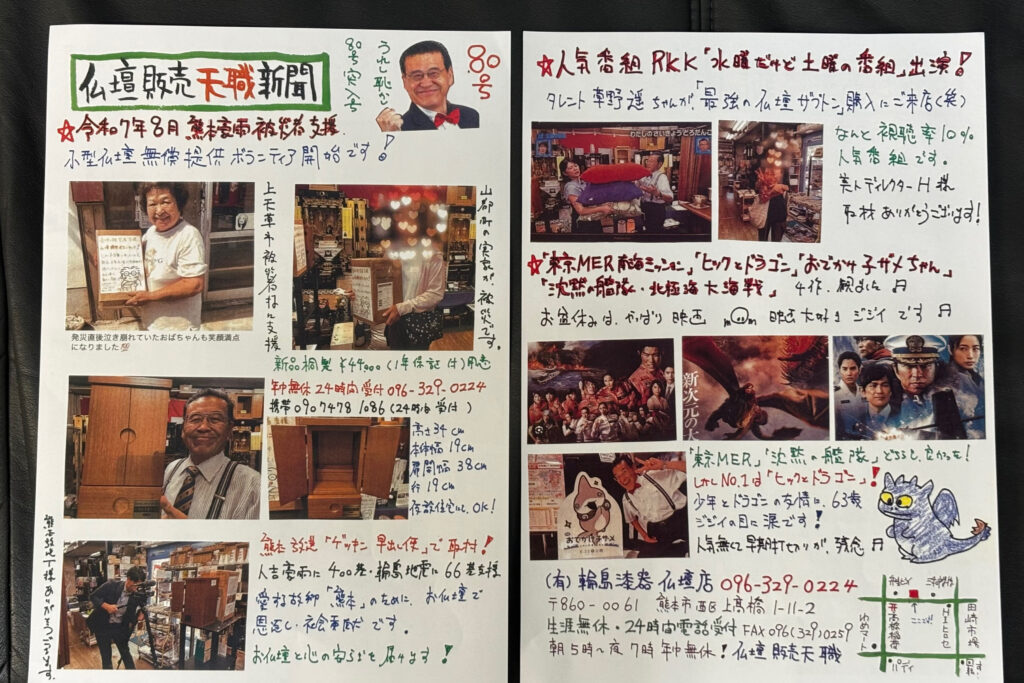 仏壇販売天職新聞
80号突入号
うれし恥かし
80号
☆令和7年8月 熊本豪雨被災者支援
小型仏壇無償提供ボランティア開始です!
上天草市被災者様に支援
山都町の実家が被災です。
発災直後泣き崩れていたおばちゃんも笑顔満点
になりました💯
新品桐製 ¥44,000(1年保証付)用意
年中無休24時間受付 096-329-0224
携帯 090 7478 1086(24時間受付)
高さ34cm
本体幅19cm
扉開幅38cm
行19cm
仮設住宅にも、OK!
熊本放送「ゲツキン早出し便」で取材!
人吉豪雨に400基・輪島地震に66基支援
愛する故郷「熊本」のために、お仏壇で
恩返し・社会奉仕です。
お仏壇と心の安らぎを届けます!
様ありがとうございます。
☆人気番組RKK「水曜だけど土曜の番組」出演!
タレント草野遥ちゃんが、「最強の仏壇ザブトン」購入にご来店(笑)
わたしのさいきょうとろだんご
なんと視聴率10%
人気番組です。
美人ディレクターH様
取材ありがとうございます!
☆「東京MER 南海ミッション」「ヒックとドラゴン」「おでかけ子ザメちゃん」
「沈黙の艦隊・北極海大海戦」 4作、観ました♬
お盆休みは、やっぱり映画 映画大好きジジイです♬
新次元の
「東京MER」「沈黙の艦隊」どちらも、良かった!
しかしNo.1は「ヒックとドラゴン」!
少年とドラゴンの友情に、63歳
ジジイの目に涙です!
人気無くて早期打ち切りが、残念♬
おでかけ子ザメ
(有)輪島漆器仏壇店 096-329-0224
〒860-0061 熊本市西区上高橋1-11-2
生涯無休・24時間電話受付 FAX096(329)0259
朝5時〜夜7時年中無休!仏壇販売天職
ここ!
田崎市場
ゆめマート